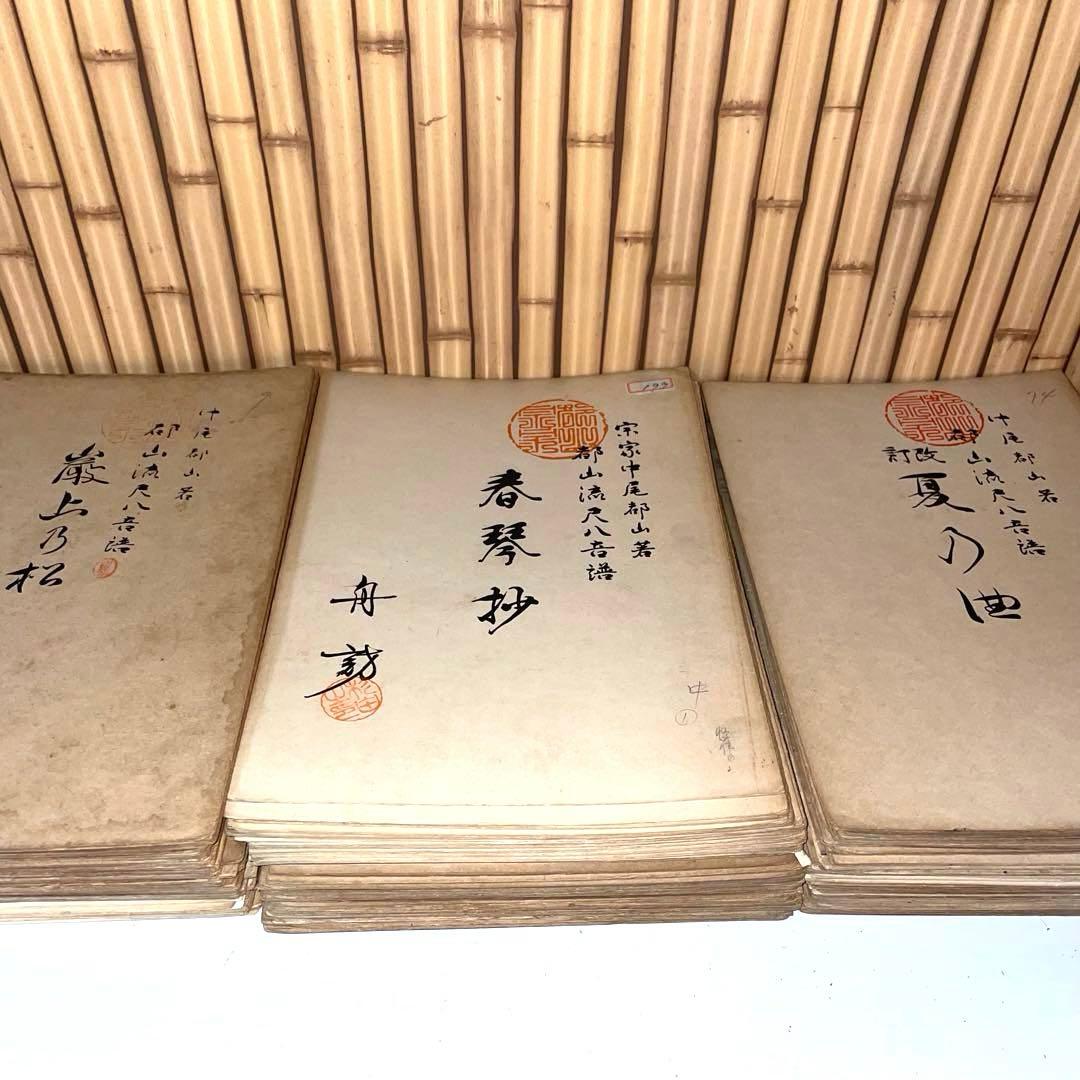 中尾都山著
都山流尺八音譜
巌上乃松
193
宗家中尾都山著
都山流尺八音譜
春琴抄
舟韵
中
①
14
中尾都山著
都山流尺八音譜
改訂
夏乃曲